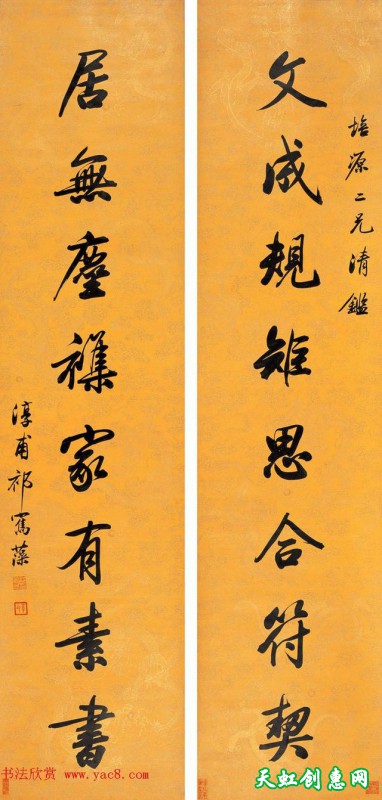 培源二兄清鑑
文成規思合符契
居無塵襍家有素書
淳甫祁寯藻
书法欣赏 www.yac8.com
天虹创惠网